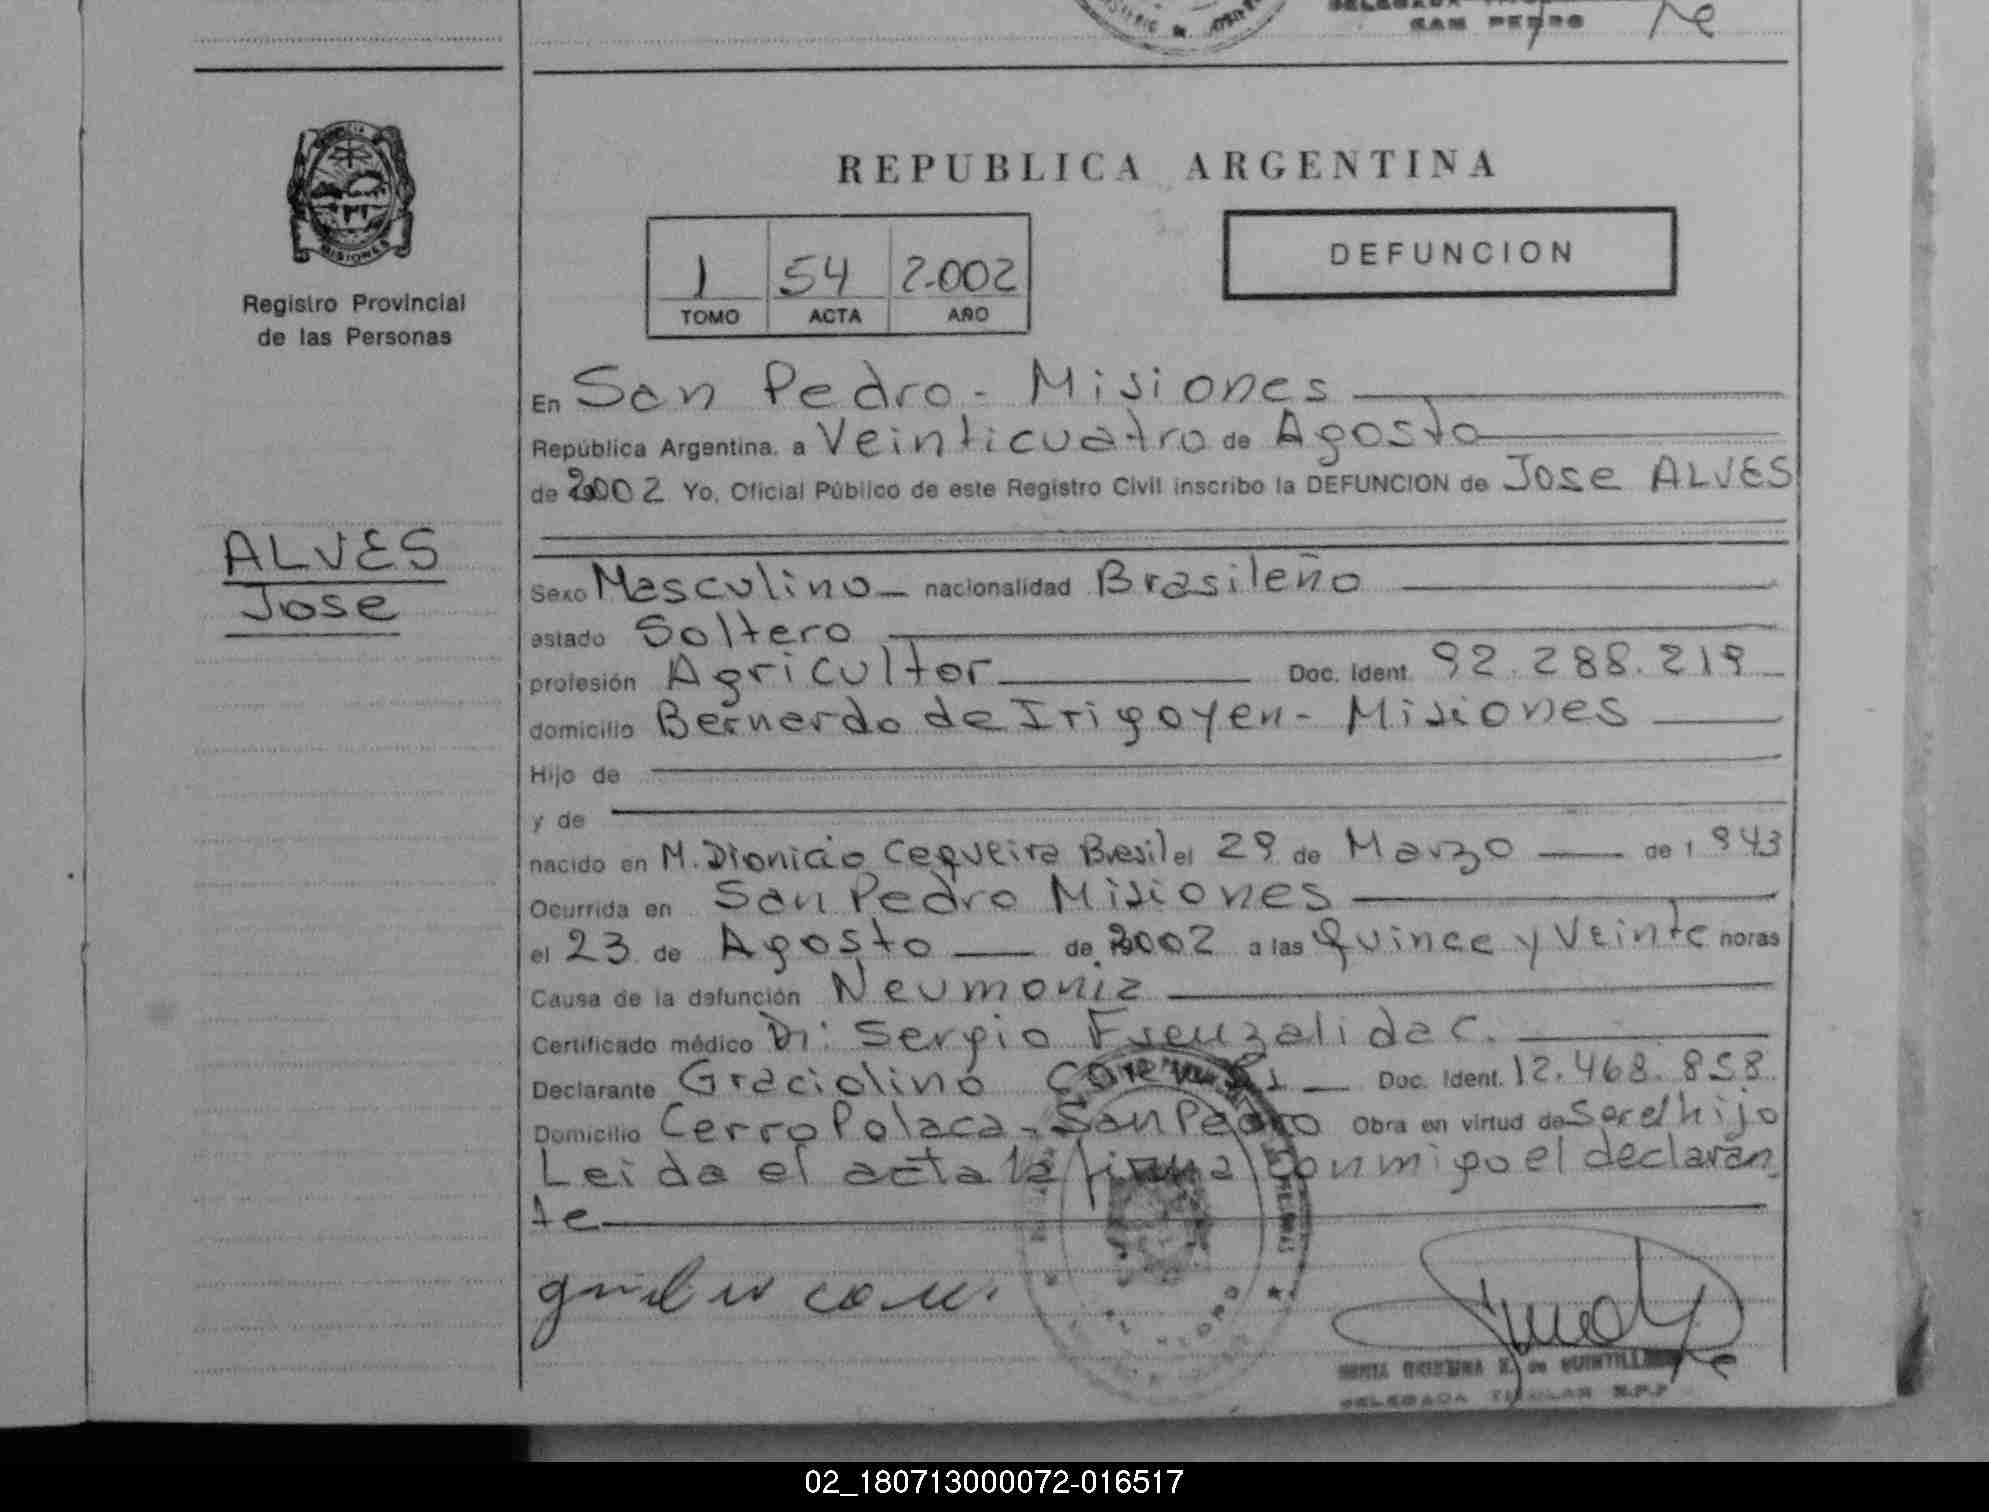 SAN PEDRO
REPUBLICA ARGENTINA
MISIONES
Registro Provincial
de las Personas
1 54 2.002
TOMO ACTA AÑO
DEFUNCION
En San Pedro - Misiones
República Argentina, a Veinticuatro de Agosto
de 2002 Yo, Oficial Público de este Registro Civil inscribo la DEFUNCION de Jose ALVES
ALVES
Jose
Sexo Masculino - nacionalidad Brasileño
estado Soltero
profesión Agricultor Doc. Ident. 92.288.219
domicilio Bernardo de Irigoyen - Misiones
Hijo de
y de
nacido en M. Dionicio Cequeira Brasil el 29 de Marzo de 1943
Ocurrida en San Pedro Misiones
el 23 de Agosto de 2002 a las Quince y Veinte horas
Causa de la defunción Neumonia
Certificado médico Dr: Sergio Fuenzalida C.
Declarante Graciolino Doc. Ident. 12.468.858
Domicilio Cerro Polaca - San Pedro Obra en virtud de Ser el hijo
Leida el acta la firma conmigo el declaran
te
DELEGADA TITULAR
02_180713000072-016517